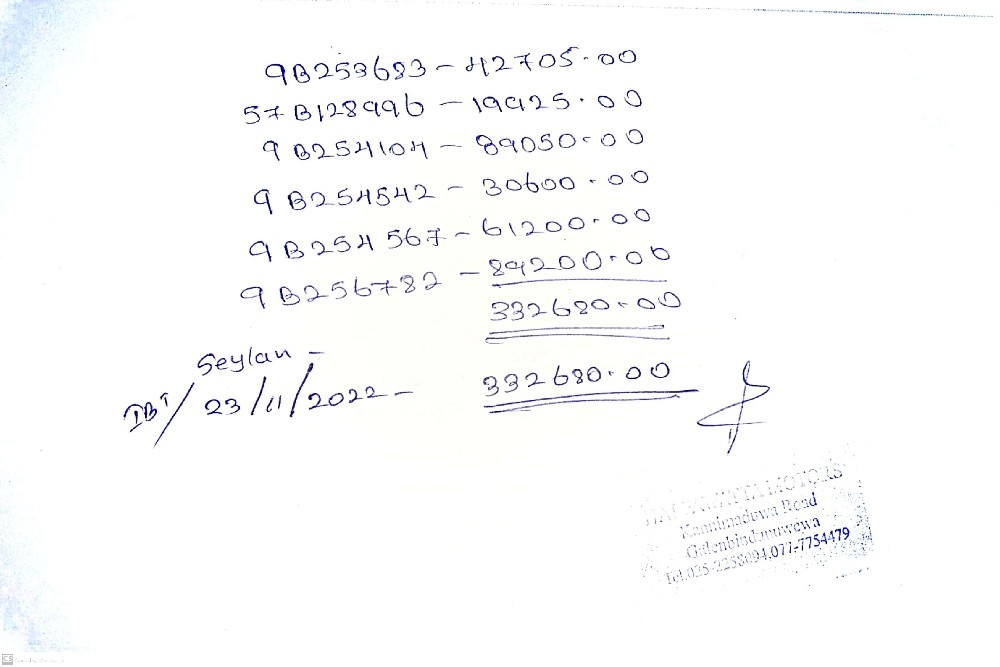 9B253683 - 42705.00
57B128996 - 19925.00
9B254104 - 89050.00
9B254542 - 30600.00
9B254567 - 61200.00
9B256782 - 89200.00
332680.00
Seylan -
IBT/ 23/11/2022 - 332680.00
MOTORS
Road
Galenbindunuwewa
Tel.025-2258094,077-7754479
CS